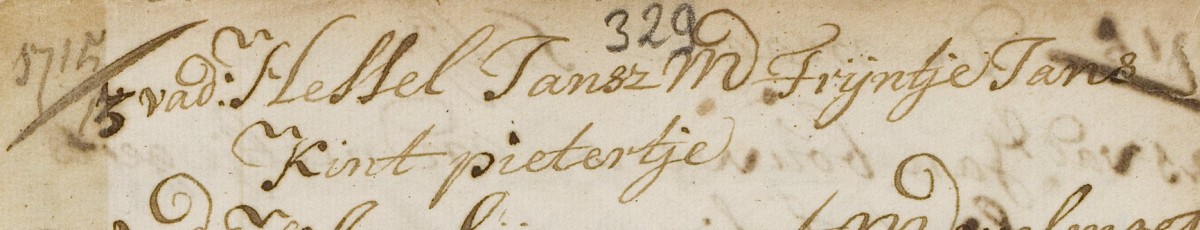 329
1715
3 vad: Hessel Jansz M Trijntje Jans
Kint pietertje